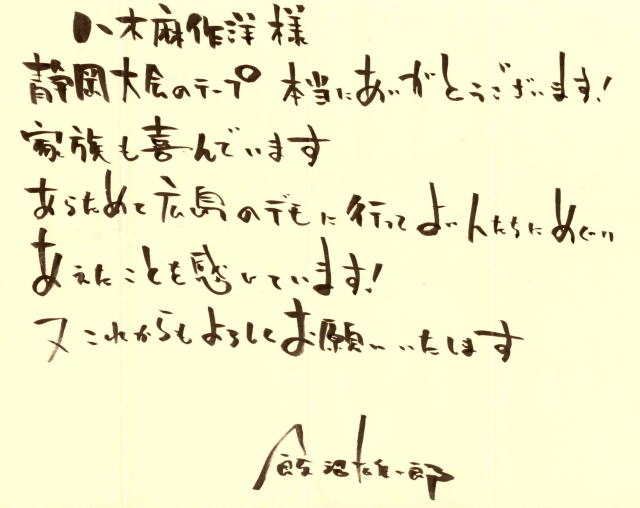 八木麻作洋様
静岡大会のテープ 本当にありがとうございます!
家族も喜んでいます
あらためて広島のデモに行ってよい人たちにめぐり
あえたことを感じています!
又これからもよろしくお願いいたします
飯沼雄一郎